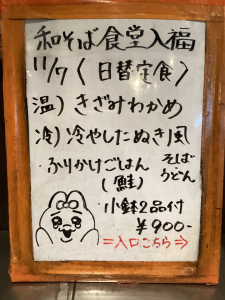 和そば食堂入福
11/7〈日替定食〉
温)きざみわかめ
冷)冷やしたぬき風
・ふりかけごはん そば
(鮭) うどん
・小鉢2品付
¥900-
=入口こちら⇒